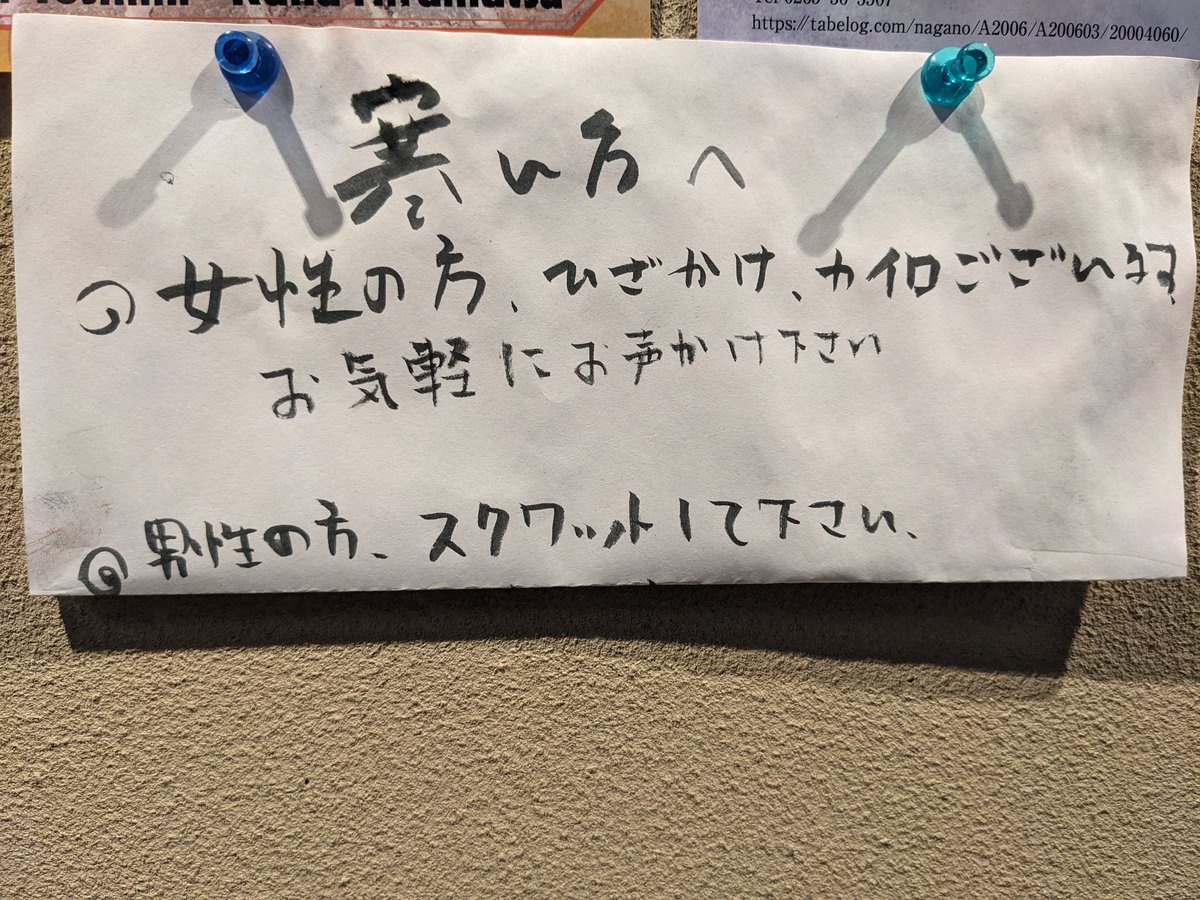 https://tabelog.com/nagano/A2006/A200603/20004060/
寒い方へ
女性の方、ひざかけ、カイロございます、
お気軽にお声かけ下さい
男性の方、スクワットして下さい、